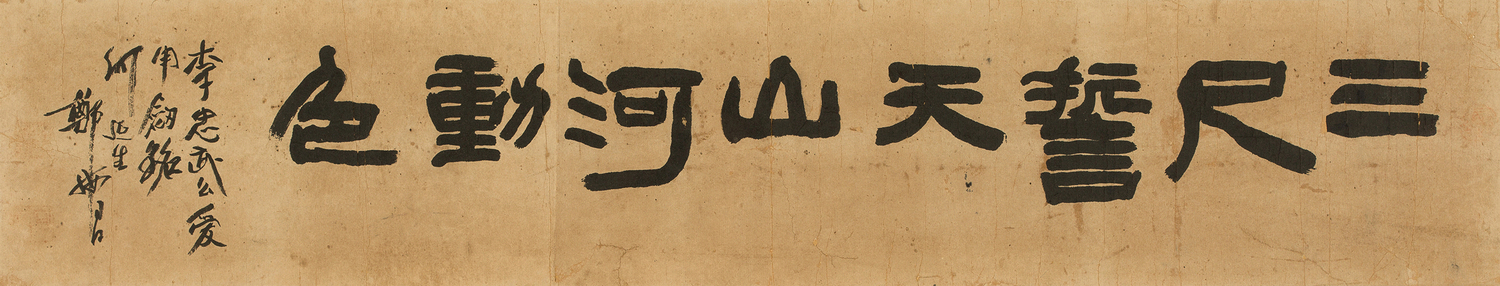 三尺誓天山河動色
李忠武公愛
用劍銘
何 生
鄭